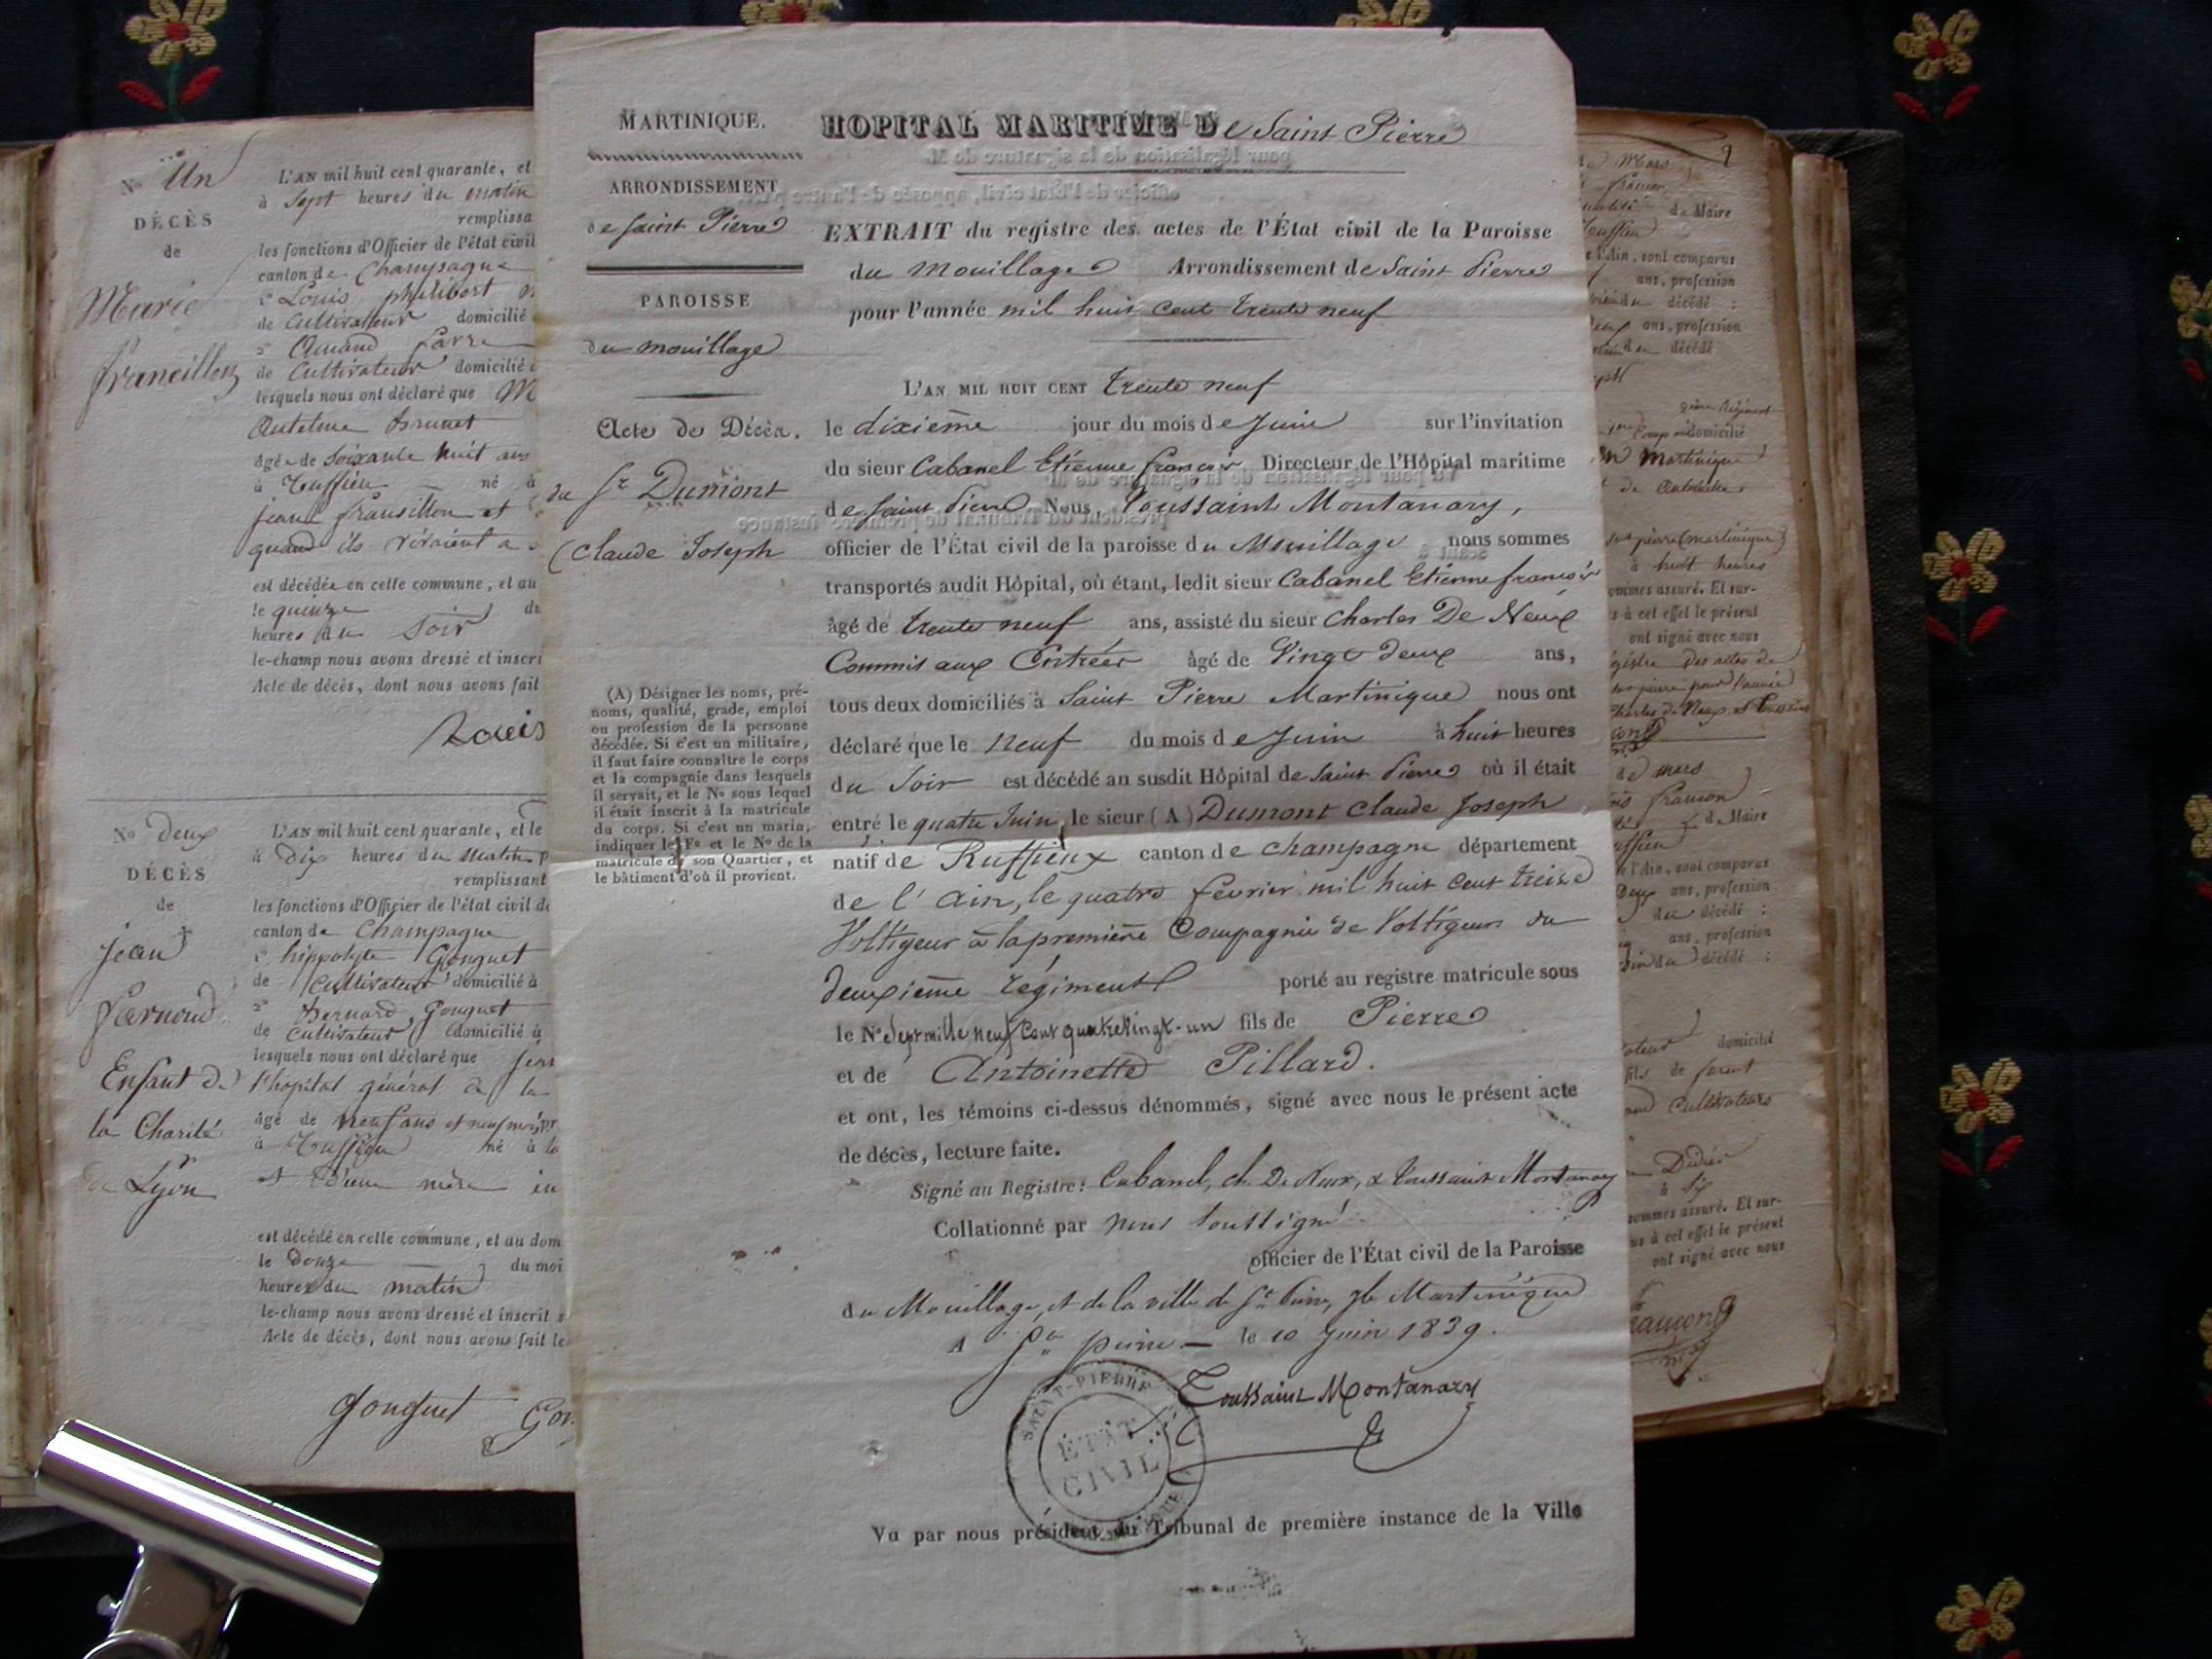 MARTINIQUE.
ARRONDISSEMENT
de Saint Pierre
PAROISSE
du mouillage
Acte de Décès.
du Sr Dumont
(Claude Joseph
(A) Désigner les noms, pré-
noms, qualité, grade, emploi
ou profession de la personne
décédée. Si c'est un militaire,
il faut faire connaître le corps
et la compagnie dans lesquels
il servait, et le No sous lequel
il était inscrit à la matricule
du corps. Si c'est un marin,
indiquer le Fo et le No de la
matricule de son Quartier, et
le bâtiment d'où il provient.
HOPITAL MARITIME De Saint Pierre
EXTRAIT du registre des actes de l'État civil de la Paroisse
du Mouillage Arrondissement de Saint Pierre
pour l'année mil huit cent trente neuf
L'AN MIL HUIT CENT trente neuf
le dixième jour du mois de Juin sur l'invitation
du sieur Cabanel Etienne françois Directeur de l'Hôpital maritime
de Saint Pierre Nous, Toussaint Montanary,
officier de l'État civil de la paroisse du Mouillage nous sommes
transportés audit Hôpital, où étant, ledit sieur Cabanel Etienne françois
âgé de trente neuf ans, assisté du sieur Charles De Neux
Commis aux Entrées âgé de Vingt deux ans,
tous deux domiciliés à Saint Pierre Martinique nous ont
déclaré que le neuf du mois de Juin à huit heures
du Soir est décédé au susdit Hôpital de Saint Pierre où il était
entré le quatre Juin, le sieur (A) Dumont Claude Joseph
natif de Ruffieux canton de Champagne département
de l'Ain, le quatre février mil huit cent treize
Voltigeur à la première Compagnie de Voltigeurs du
deuxième régiment porté au registre matricule sous
le No Sept mille neuf cent quatrevingt-un fils de Pierre
et de Antoinette Pillard.
et ont, les témoins ci-dessus dénommés, signé avec nous le présent acte
de décès, lecture faite.
Signé au Registre: Cabanel, ch. De Neux, & Toussaint Montanary
Collationné par nous soussigné
officier de l'État civil de la Paroisse
du Mouillage, et de la ville de St Pierre, Martinique
A St pierre le 10 Juin 1839.
Toussaint Montanary
SAINT-PIERRE
ÉTAT
CIVIL
Vu par nous président du Tribunal de première instance de la Ville
No Un
DÉCÈS
de
Marie
francillon
L'AN mil huit cent quarante, et
à Sept heures du matin
remplissa
les fonctions d'Officier de l'état civil
canton de Champagne
Louis philibert
de Cultivateur domicilié
de Cultivateur domicilié
lesquels nous ont déclaré que M
Antelme Brunet
âgée de soixante huit ans
né à
jean et
quand ils vivaient
est décédée en cette commune, et au
le quinze du
heures du Soir
le-champ nous avons dressé et inscri
Acte de décès, dont nous avons fait
Louis
No deux
DÉCÈS
de
jean
farnoud
Enfant de
la Charité
de Lyon
L'AN mil huit cent quarante, et le
à Dix heures du matin
remplissant
les fonctions d'Officier de l'état civil de
canton de Champagne
hippolyte Gonguet
de Cultivateur domicilié à
Bernard Gonguet
de Cultivateur domicilié à
lesquels nous ont déclaré que jean
l'hopital général de la
âgé de neuf ans et neuf mois
né à la
et d'une mère in
est décédé en cette commune, et au dom
le Douze du moi
heures du matin
le-champ nous avons dressé et inscrit s
Acte de décès, dont nous avons fait le
Gonguet
2
de Mars
de Maire
de l'Ain, sont comparus
ans, profession
décédé :
ans, profession
décédé
domicilié
Martinique
pierre (martinique)
à huit heures
sommes assuré. Et sur-
s à cet effet le présent
ont signé avec nous
registre des actes de
pierre pour l'année
Charles de Neux et Toussaint
de mars
de Maire
de l'Ain, sont comparus
ans, profession
du décédé :
ans, profession
décédé :
domicilié
fils de
cultivateurs
à Six
sommes assuré. Et sur-
us à cet effet le présent
ont signé avec nous